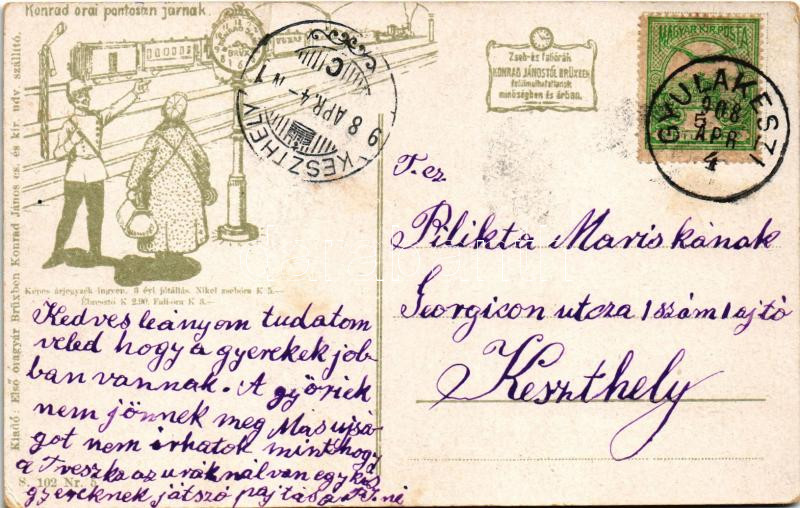 Konrad órái pontosan járnak.
Zseb-és faliórák
KONRAD JÁNOSTÓL BRÜXBEN
felülmulhatatlanok
minőségben és árban.
MAGYAR KIR. POSTA
GYULAKESZI
908
APR
4
KESZTHELY
98 APR. 4
C
Kiadó: Első óragyár Brüxben Konrad János cs. és kir. udv. szállító.
Képes árjegyzék ingyen. 3 évi jótállás. Nikel zsebóra K 5.—
Ébresztő K 2.90. Fali-óra K 3.—
T. cz.
Pilikta Mariskának
Georgicon utcza 1 szám 1 ajtó
Keszthely
Kedves leányom tudatom
veled hogy a gyerekek job-
ban vannak. A győriek
nem jönnek meg Más ujsá
got nem irhatok mint hogy
a Treszka az uráknál van egy kis
gyereknek játszó pajtása
S. 102 Nr. 5.